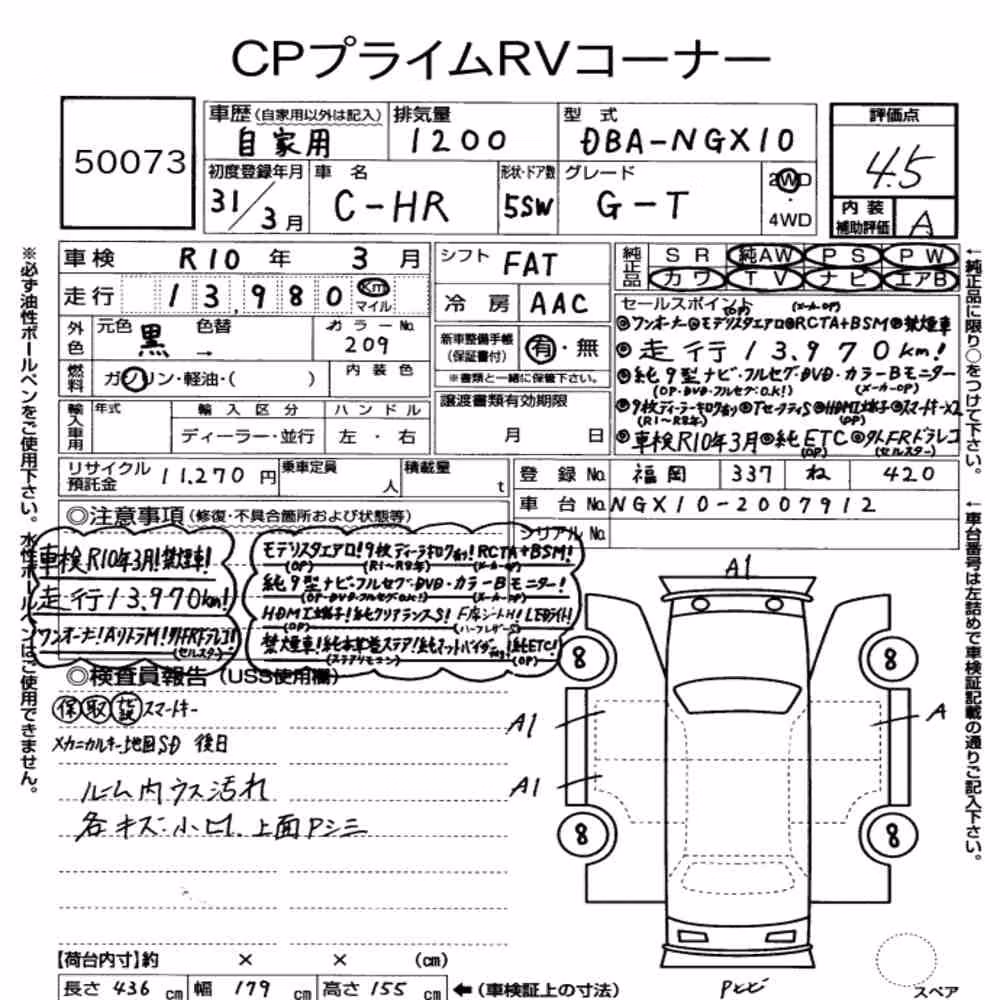 CPプライムRVコーナー
50073
車歴 (自家用以外は記入)
自家用
排気量
1200
型式
DBA-NGX10
評価点
4.5
内装補助評価
A
初度登録年月
31/3月
車名
C-HR
形状・ドア数
5SW
グレード
G-T
2WD
4WD
車検 R10年 3月
走行 13,980 Km マイル
外色 元色 黒 色替 →
カラーNo. 209
燃料 ガソリン・軽油・( )
内装色
輸入車用 年式 輸入区分 ハンドル
ディーラー・並行 左・右
シフト FAT
冷房 AAC
新車整備手帳 (保証書付) 有・無
※書類と一緒に保管下さい。
譲渡書類有効期限
月 日
純正品 SR 純AW PS PW
カワ TV ナビ エアB
セールスポイント (OP) (メーカーOP)
◎ワンオーナー◎モデリスタエアロ◎RCTA+BSM◎禁煙車
◎走行13.970km!
◎純9型ナビ・フルセグ・DVD・カラーBモニター
(OP・DVD・フルセグO.K!) (メーカーOP)
(R1~R8年) (OP)
◎車検R10年3月◎純ETC◎外FRドラレコ
(OP) (セルスター)
リサイクル預託金 11,270円
乗車定員 人
積載量 t
登録No. 福岡 337 ね 420
車台No. NGX10-2007912
シリアルNo.
◎注意事項 (修復・不具合箇所および状態等)
車検R10年3月!禁煙車!
走行13.970km!
ワンオーナー!AリトラM!外FRドラレコ!
(セルスター)
モデリスタエアロ!9枚ディーラーキロク有り!RCTA+BSM!
(OP) (R1~R8年) (メーカーOP)
純9型ナビ・フルセグ・DVD・カラーBモニター!
(OP・DVD・フルセグO.K!) (メーカーOP)
HDMI端子!純クリアランスS!F席シートH!LEDライト!
(OP) (ハーフレザーS)
禁煙車!純本革巻ステア!純フットバイザー!純ETC!
(ステアリモコン) (OP)
◎検査員報告 (USS使用欄)
保 取 説 スマートキー
メカニカルキー 地図SD 後日
ルーム内ウス汚れ
各キズ・小凹、上面Pシミ
A1
A1
A1
A
8
8
8
8
Pとび
スペア
【荷台内寸】約 × × (cm)
長さ 436 cm 幅 179 cm 高さ 155 cm ←(車検証上の寸法)
※必ず油性ボールペンをご使用下さい。水性ボールペンはご使用できません。
←純正品に限り○をつけて下さい。
←車台番号は左詰めで車検証記載の通りご記入下さい。